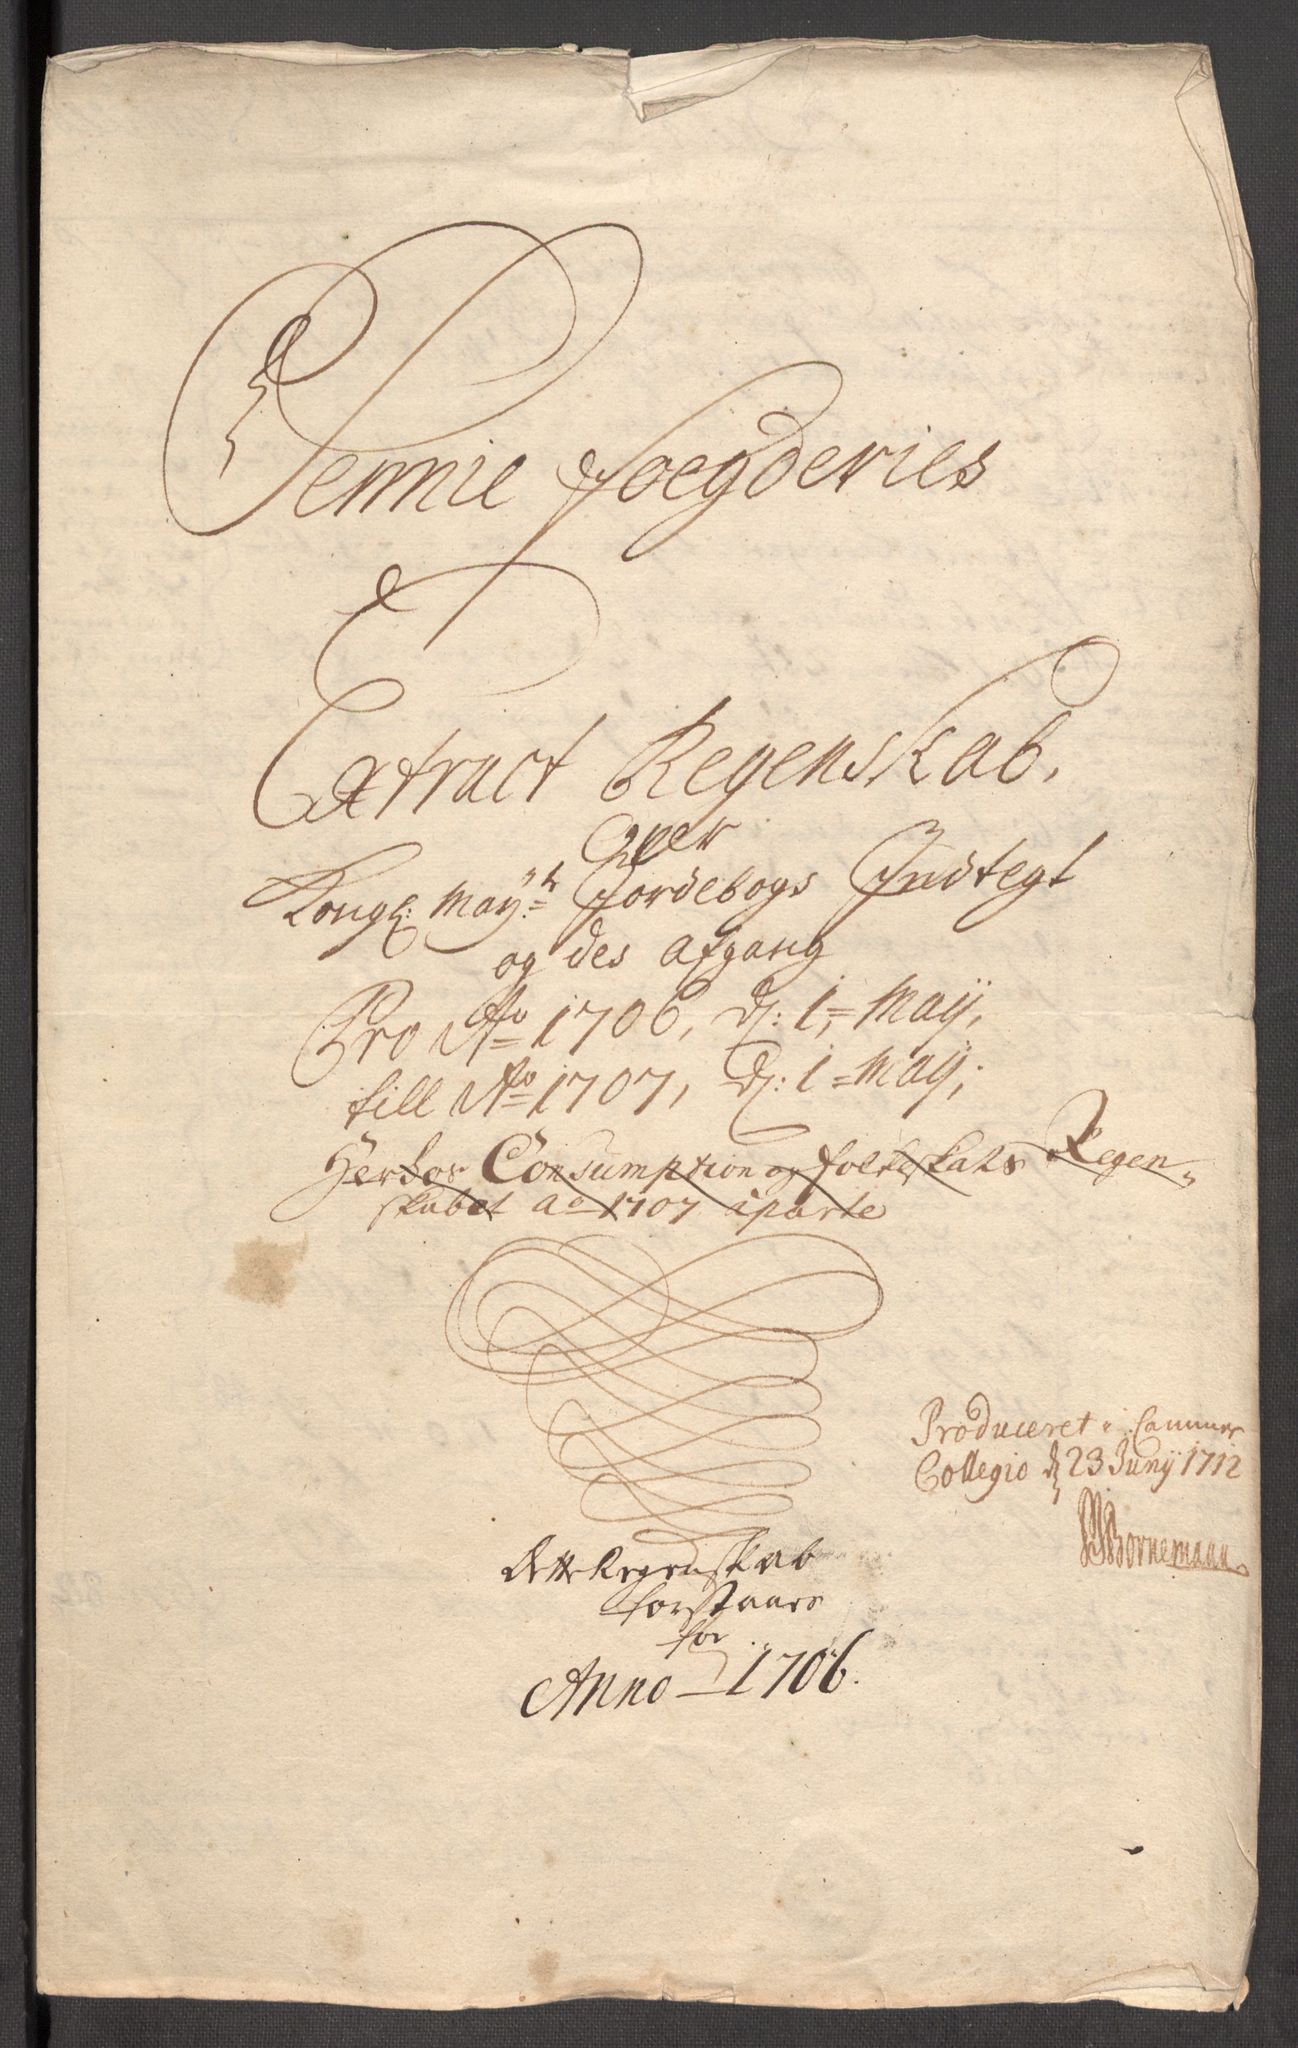 Sennie Foegderies
Extract Regenskab,
Over
Kongl: May:ts Jordebogs Indtegt
og des afgang
Pro Ao 1706, d: 1= Maij,
till Ao 1707, d: 1= Maij;
Herhos Consumption og folkeskats Regen-
skabet Ao 1707 aparte
Produceret i Cammer
Collegio d 23 Junij 1712
Bornemann
Dette Regenskab
forstaaes
for
Anno 1706.